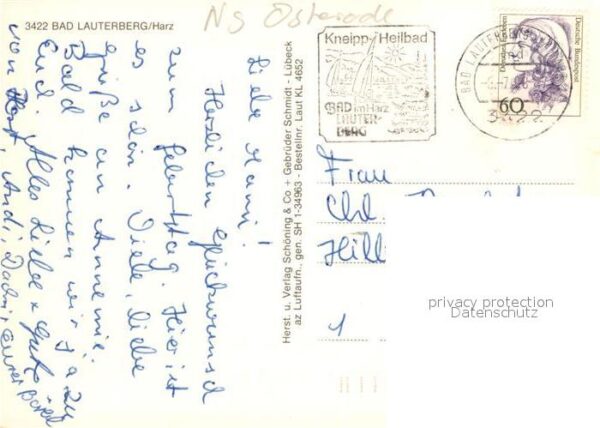 3422 BAD LAUTERBERG/Harz
Ns Osterode
Liebe Hanni!
Herzlichen Glückwunsch
zum Geburtstag. Hier ist
es schön. Viele, liebe
Grüße an Annemie.
Bald kommen wir ja zu
Euch. Alles Liebe + Gute
von Horst, Andi,
Herst. u. Verlag Schöning & Co + Gebrüder Schmidt - Lübeck
az Luftaufn., gen. SH 1-34963 - Bestellnr. Laut KL 4652
Kneipp-Heilbad
BAD im Harz
LAUTER-
BERG
BAD LAUTERBERG
3422
Deutsche Bundespost
60
Frau
Chr.
Hill
1
privacy protection
Datenschutz